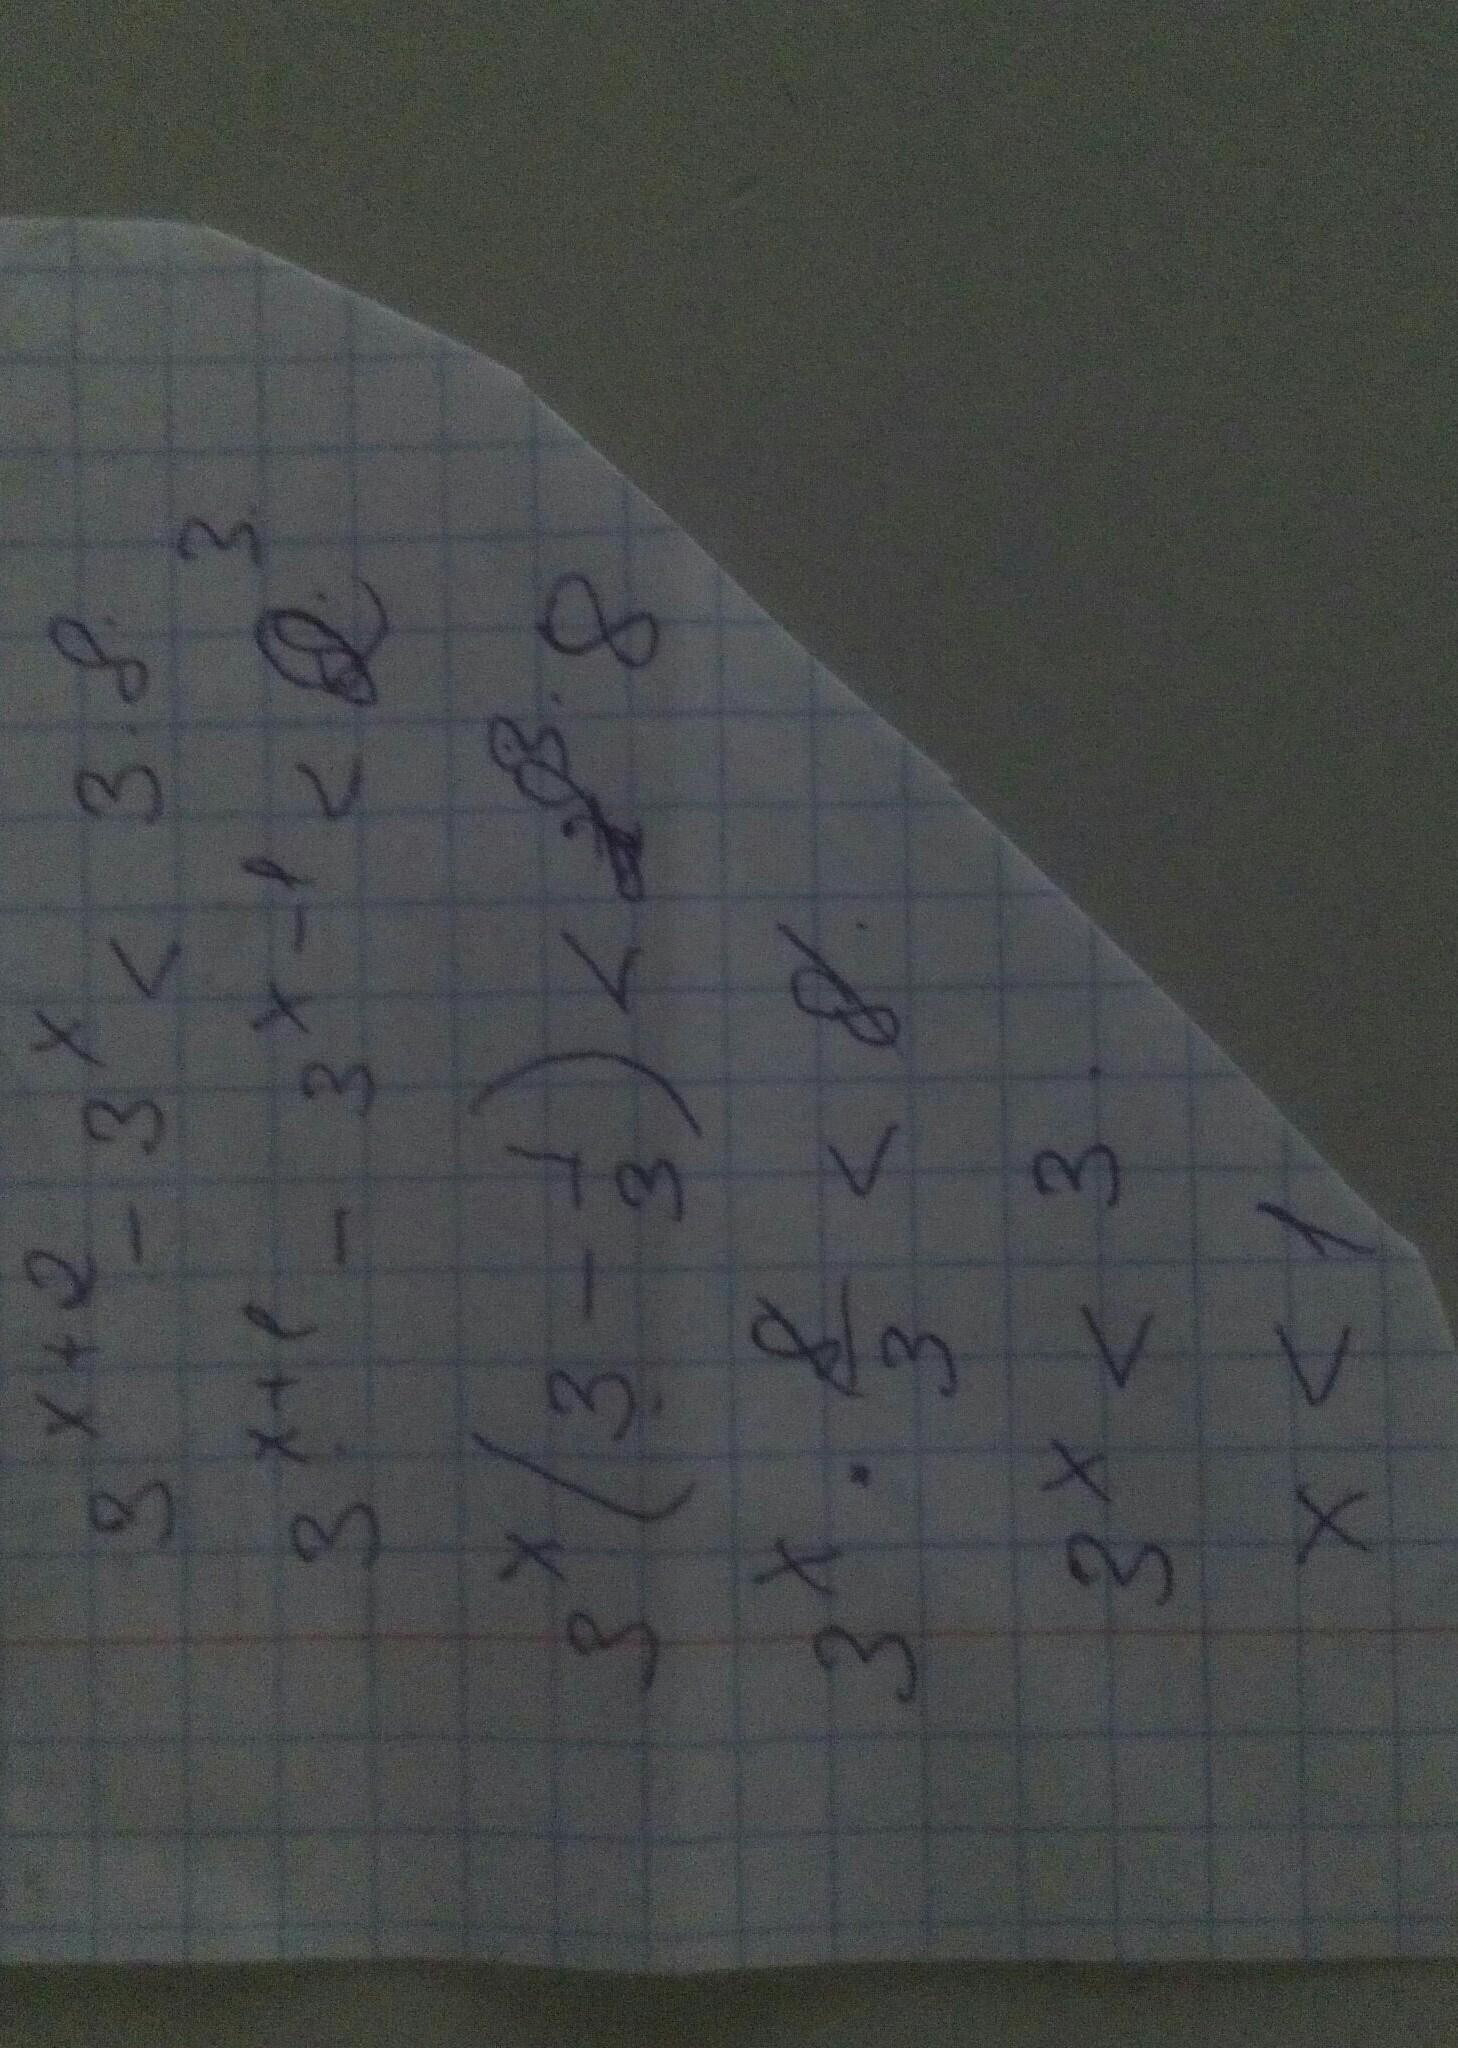 3^{x+2} - 3^x < 3·8
3^{x+1} - 3^{x-1} <
3^x (3 - 1/3) < 8
3^x · 8/3 < 8
3^x < 3
x < 1